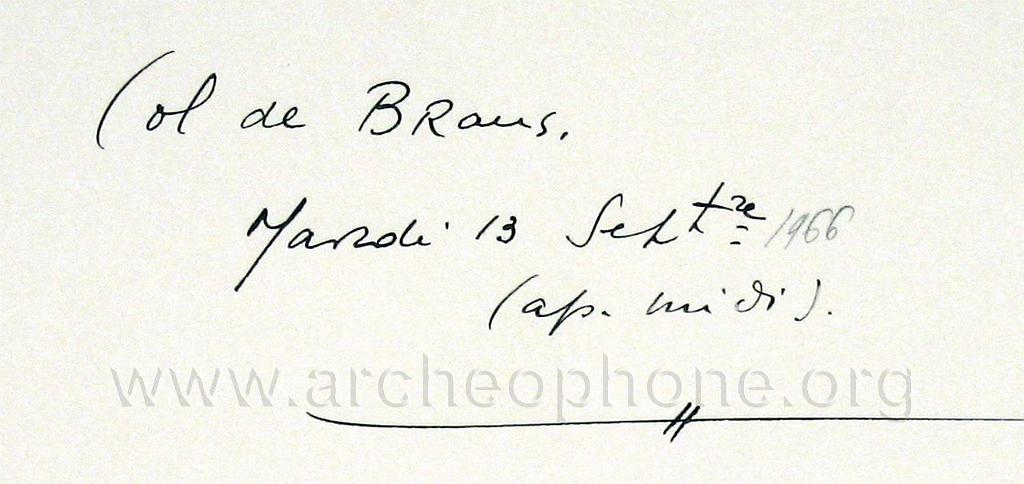 Col de BRaus.
Mardi 13 Septre 1966
(ap. midi).
www.archeophone.org